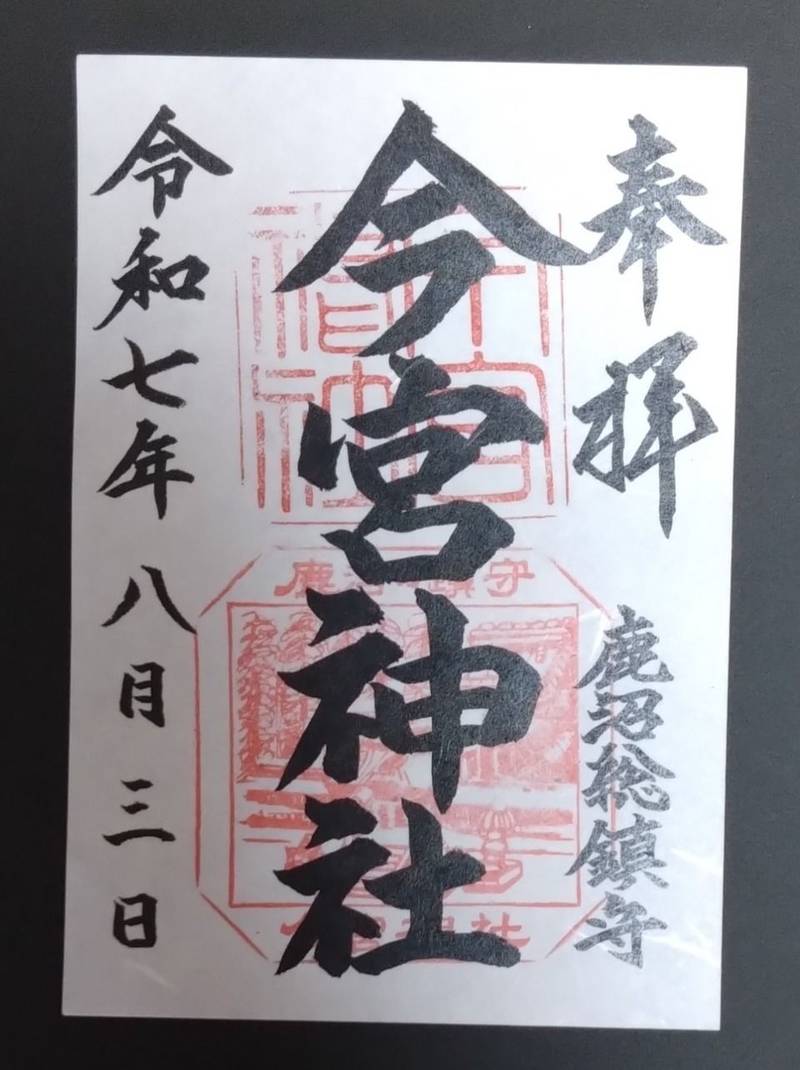 奉拝
鹿沼総鎮守
今宮神社
令和七年八月三日